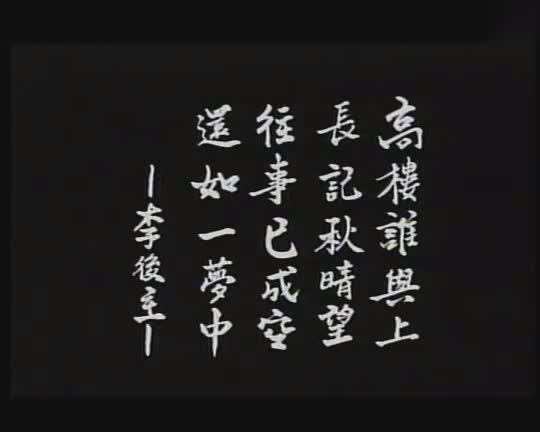 高樓誰與上
長記秋晴望
往事已成空
還如一夢中
—李後主—